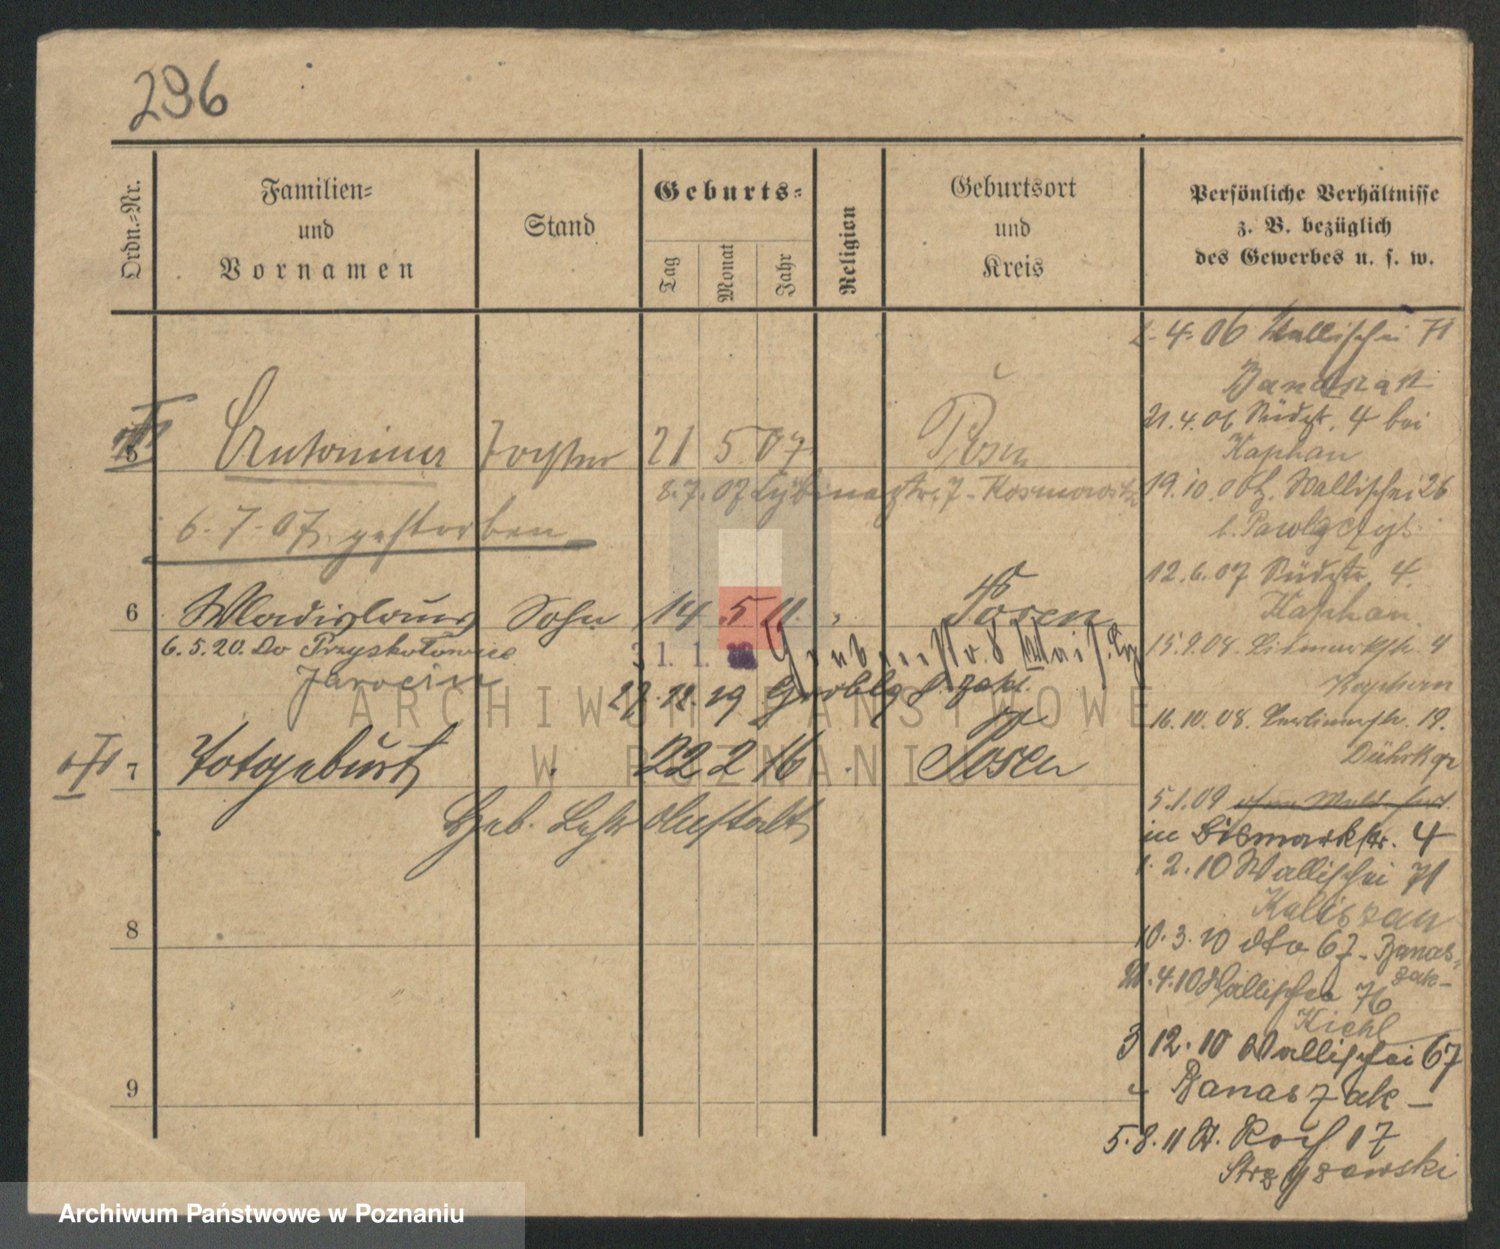 296
Ordn.=Nr.
Familien=
und
Vornamen
Stand
Geburts=
Tag
Monat
Jahr
Religion
Geburtsort
und
Kreis
Persönliche Verhältnisse
z. B. bezüglich
des Gewerbes u. s. w.
5 Antonina Tochter 21 5 07 Posen
8.7.07
6.-7.-07. gestorben
6 Wladislaus Sohn 14 5 11 Posen
6.5.20. Do Przyskotowice
Jarocin
1. 1.
27.12.19
7 Totgeburt 22 2 16 Posen
Geb. Lehr Anstalt
8
9
4. 06 Wallischei 71
21.4.06 Südstr. 4 bei
Kaphan
19.10.06 Wallischei 26
12.6.07 Südstr. 4.
Kaphan.
15.9.08. Bismarckstr. 4
Kaphan
16.10.08. Berlinerstr. 19.
5.1.09
in Bismarkstr. 4
1.2.10 Wallischei 71
Kaliszan
10.3.10 dto 67 - Banas=
zak -
21.4.10 Wallischei 76
Kiehl
3 12.10 Wallischei 67
Banaszak -
5.8.11 St. Roch 17
Strzyzewski
ARCHIWUM PAŃSTWOWE
W POZNANIU
Archiwum Państwowe w Poznaniu